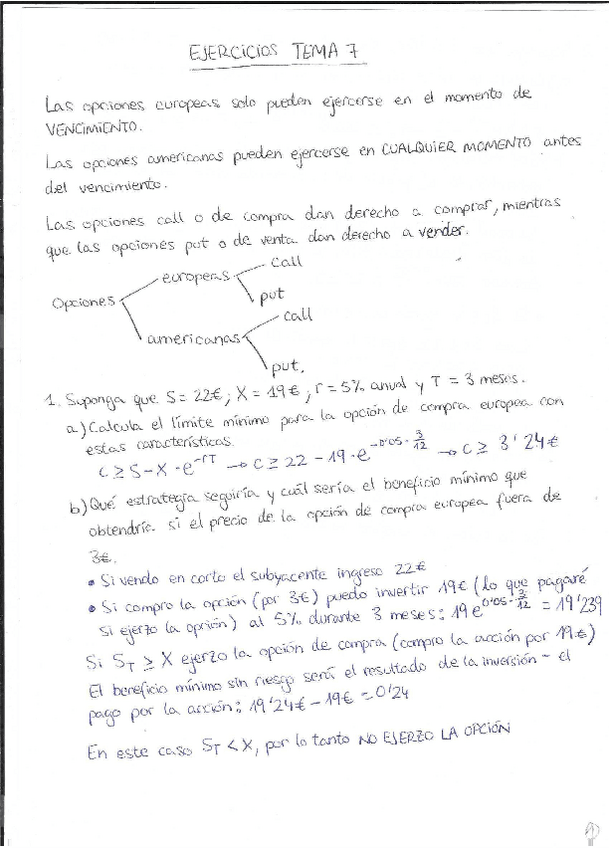 EJERCICIOS TEMA 7
Las opciones europeas solo pueden ejercerse en el momento de
VENCIMIENTO.
Las opciones americanas pueden ejercerse en CUALQUIER MOMENTO antes
del vencimiento.
Las opciones call o de compra dan derecho a comprar, mientras
que las opciones put o de venta dan derecho a vender.
call
europeas
put
Opciones
call
americanas
put.
1. Suponga que S = 22€, X = 19€, r = 5% anual y T = 3 meses.
a) Calcula el límite mínimo para la opción de compra europea con
estas características.
c ≥ S - X · e^-rT → c ≥ 22 - 19 · e^-0'05 · 3/12 → c ≥ 3'24€
b) Qué estrategia seguiría y cuál sería el beneficio mínimo que
obtendría si el precio de la opción de compra europea fuera de
3€.
• Si vendo en corto el subyacente ingreso 22€
• Si compro la opción (por 3€) puedo invertir 19€ (lo que pagaré
si ejerzo la opción) al 5% durante 3 meses: 19 e^0'05 · 3/12 = 19'239
Si S_T ≥ X ejerzo la opción de compra (compro la acción por 19€)
El beneficio mínimo sin riesgo será el resultado de la inversión - el
pago por la acción: 19'24€ - 19€ = 0'24
En este caso S_T < X, por lo tanto NO EJERZO LA OPCIÓN
1